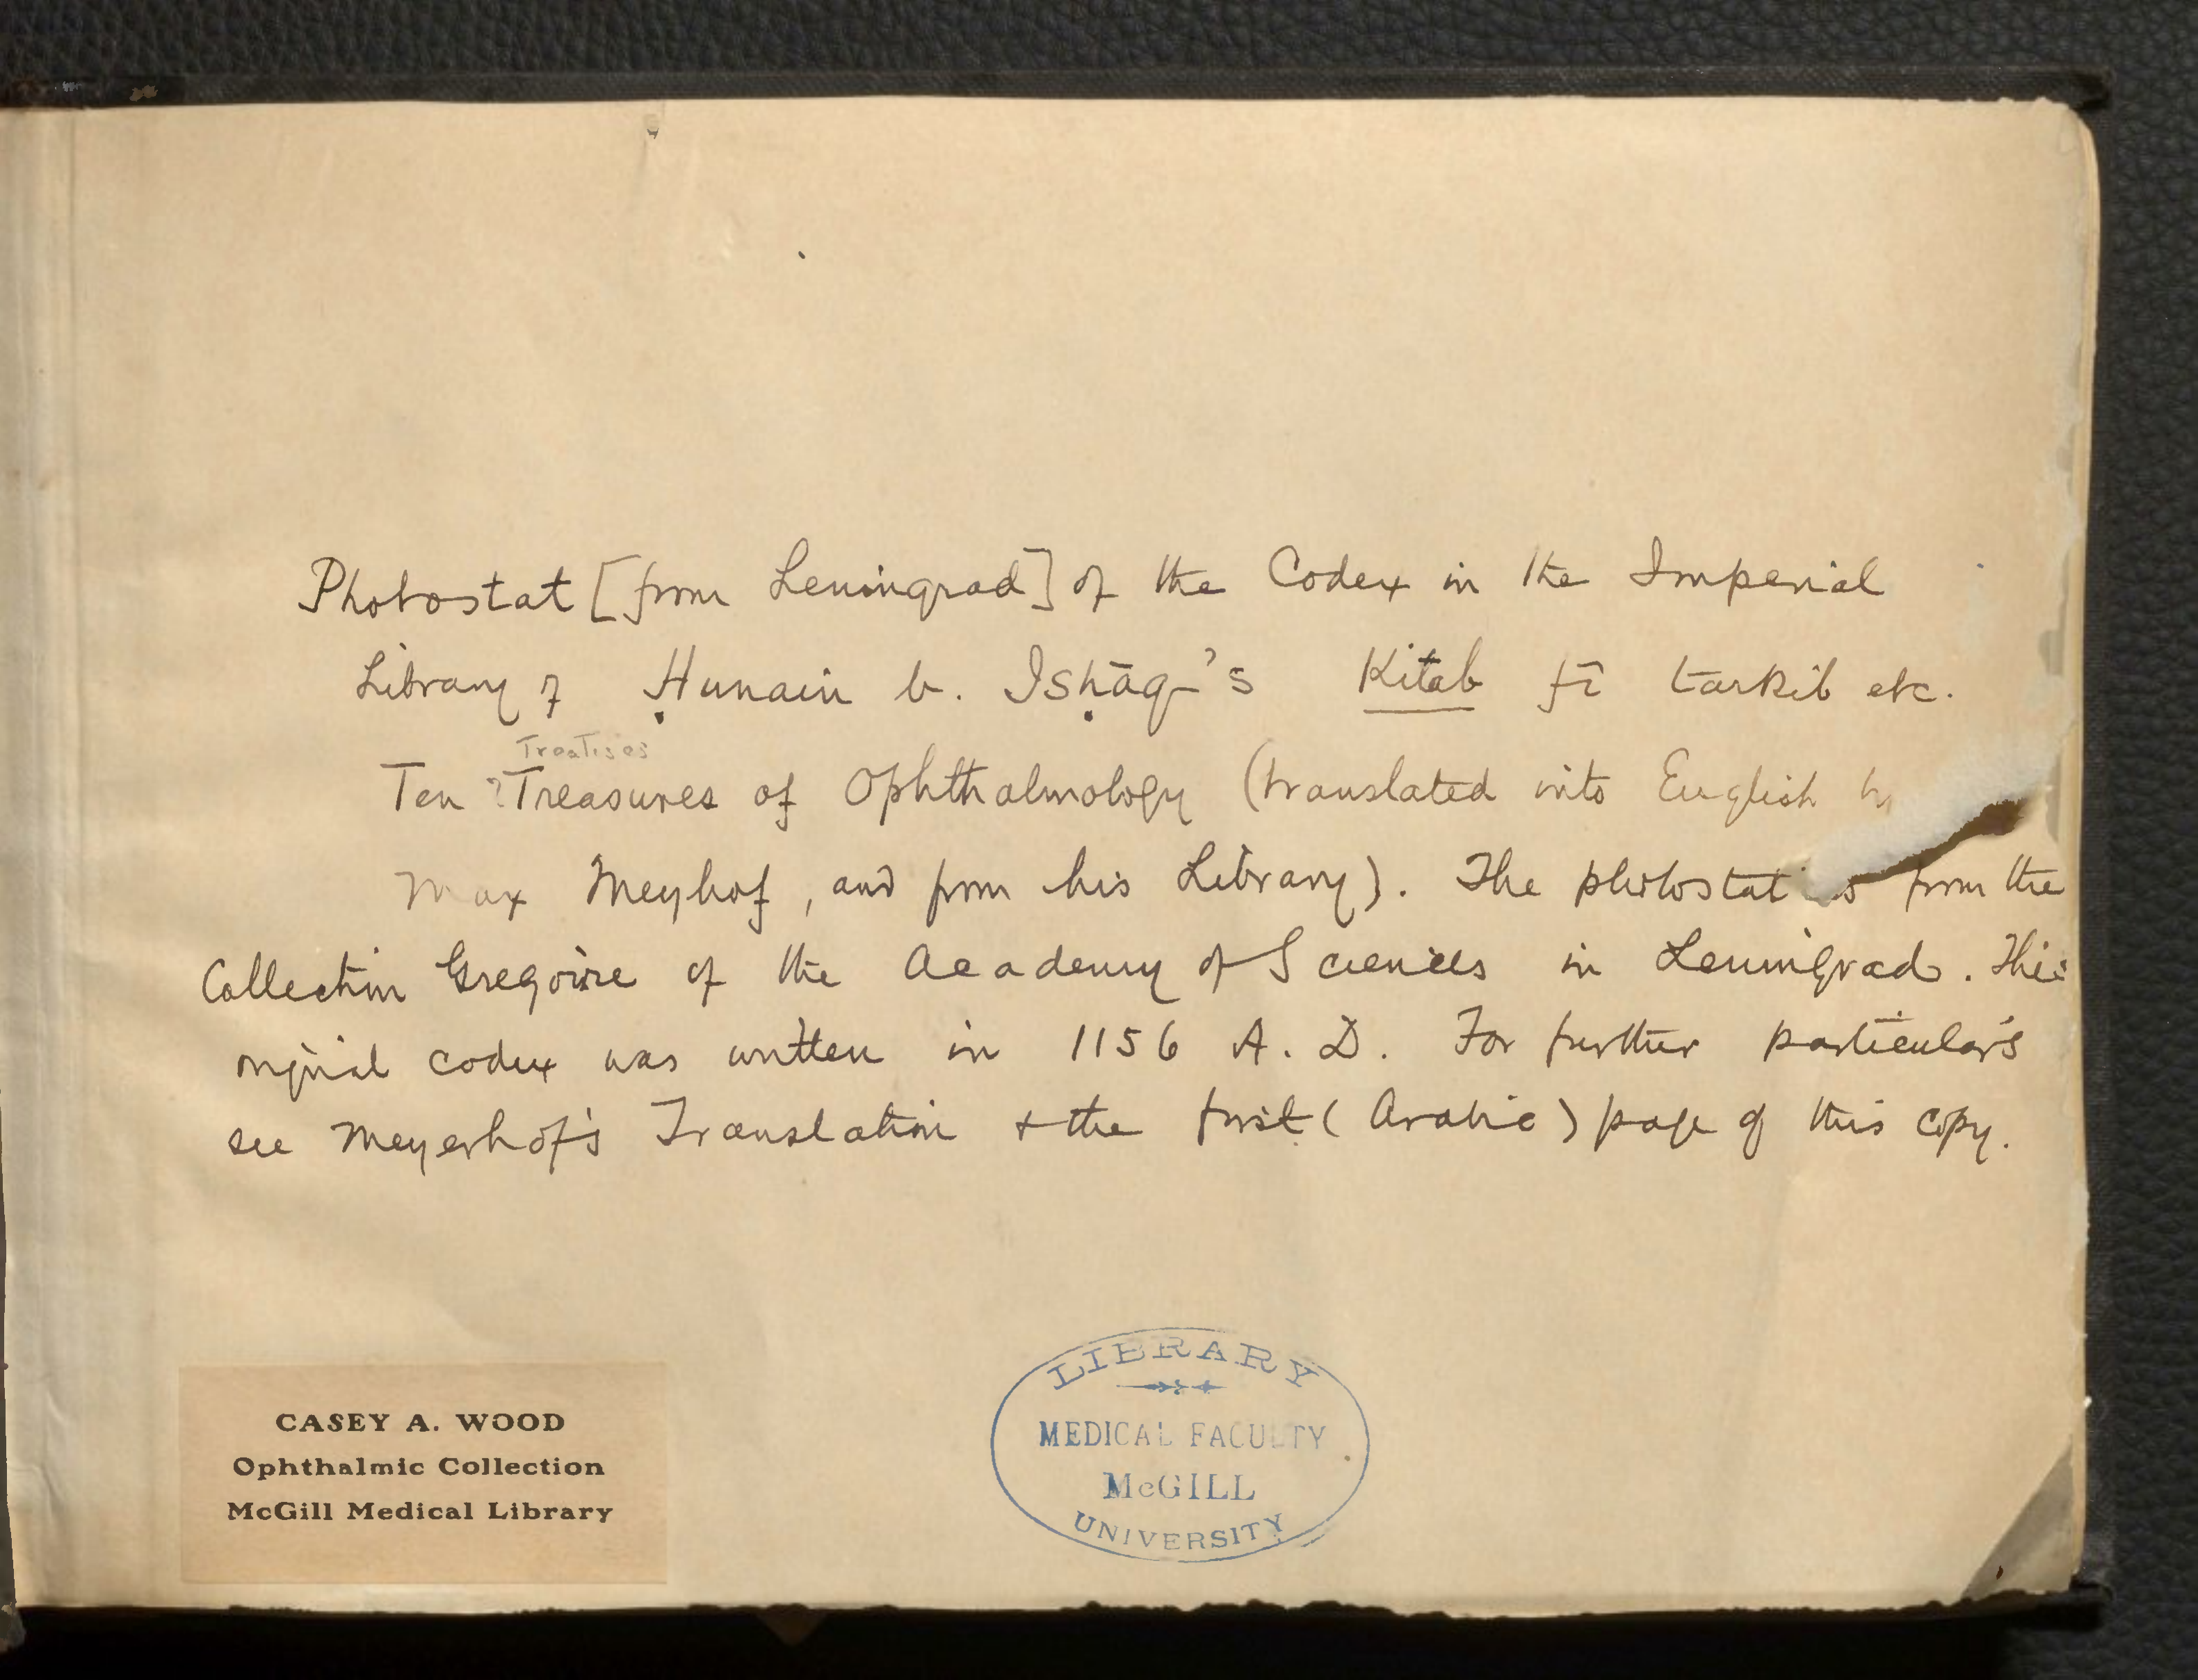 Photostat [from Leningrad] of the Codex in the Imperial
Library of Ḥunain b. Isḥāq's Kitab fī tarkib etc.
Treatises
Ten ?Treasures of Ophthalmology (translated into English by
Max Meyhof, and from his Library). The photostat is from the
Collection Gregoire of the Academy of Sciences in Leningrad. This
original codex was written in 1156 A. D. For further particulars
see Meyerhof's Translation + the first (Arabic) page of this copy.
CASEY A. WOOD
Ophthalmic Collection
McGill Medical Library
LIBRARY
MEDICAL FACULTY
McGILL
UNIVERSITY